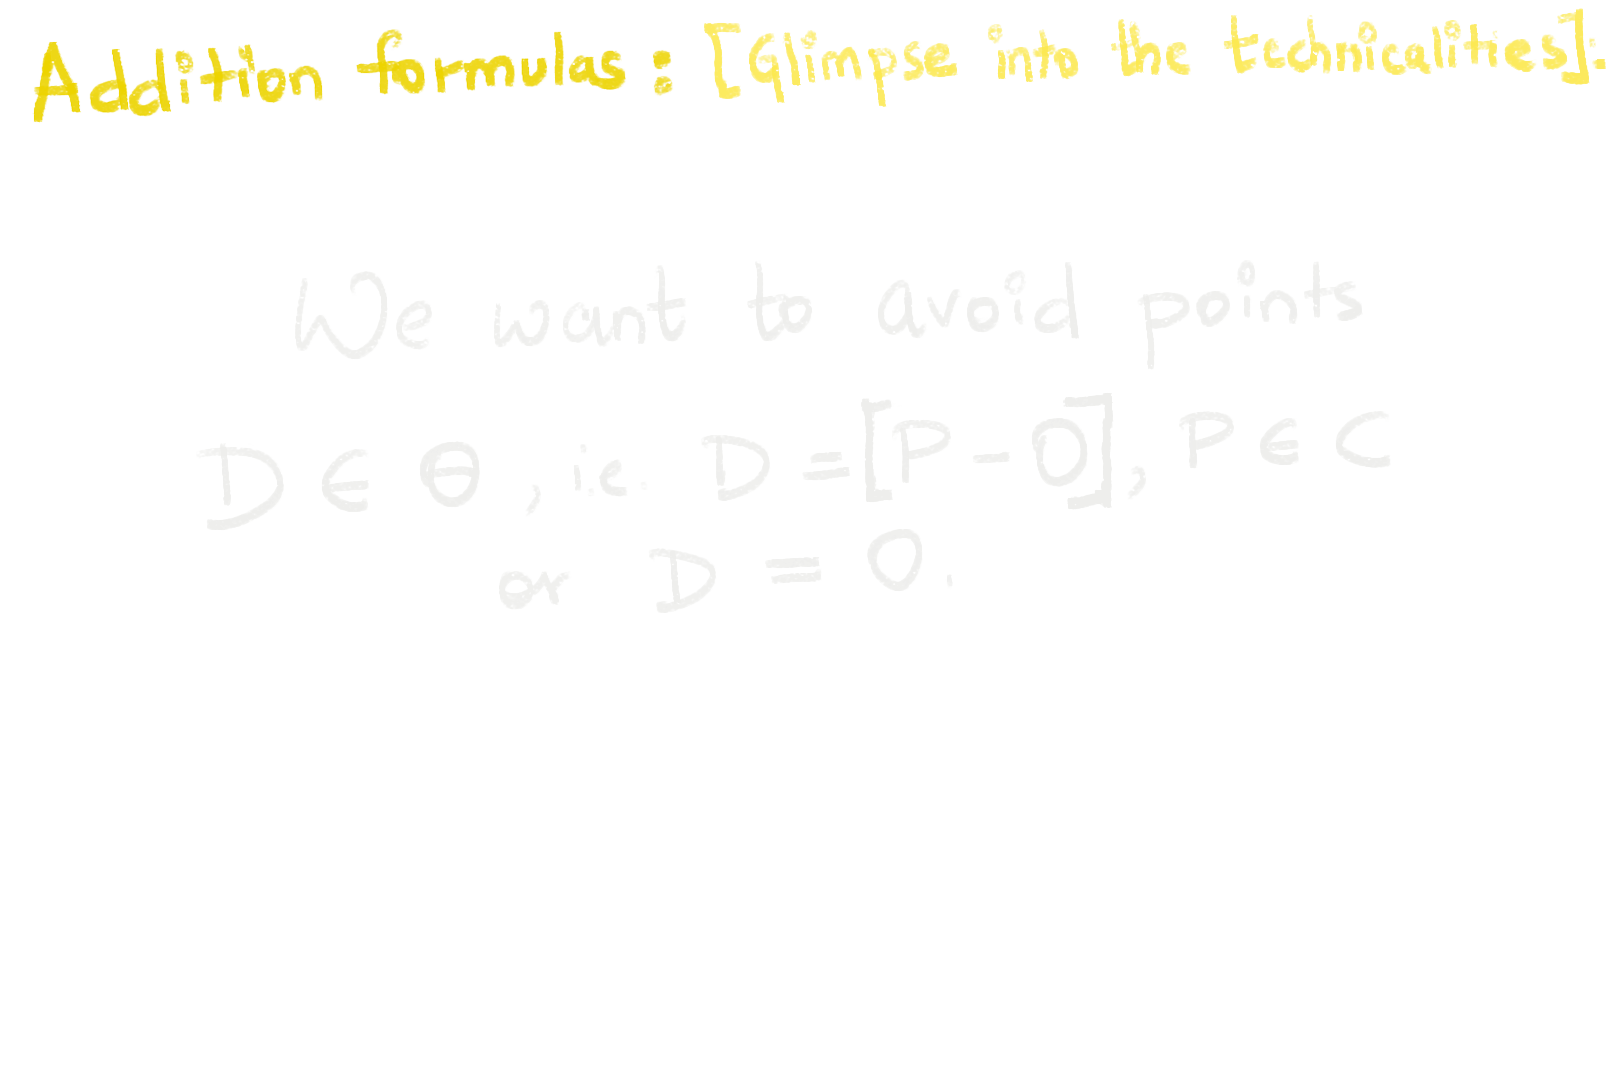 Addition formulas : [Glimpse into the technicalities].
We want to avoid points
D ∈ Θ , i.e. D = [P - O], P ∈ C
or D = O.